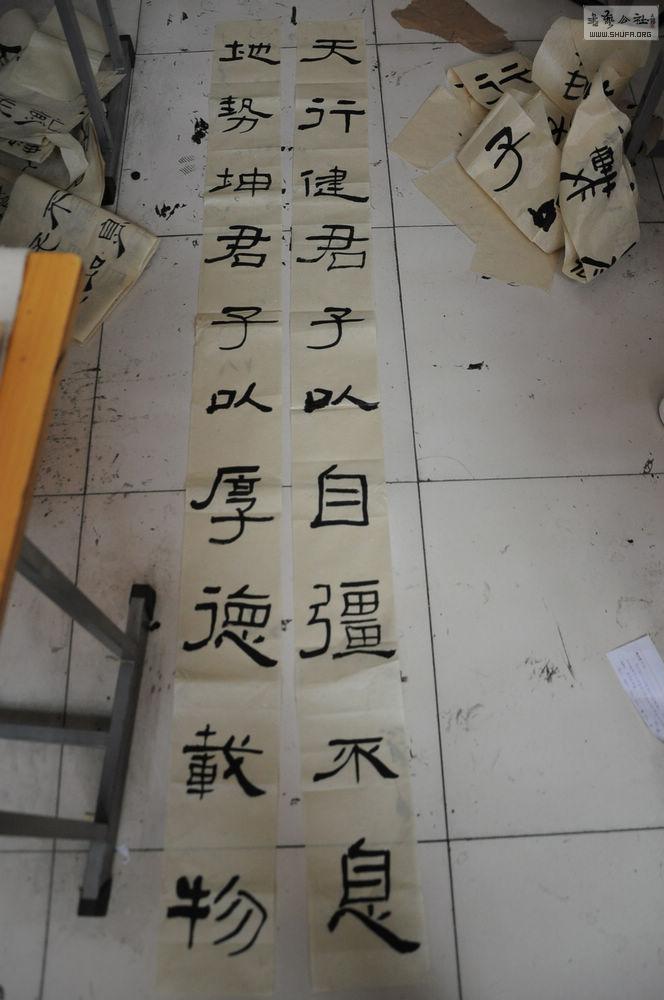 天行健君子以自彊不息
地势坤君子以厚德載物
子
不
書藝公社
WWW.SHUFA.ORG